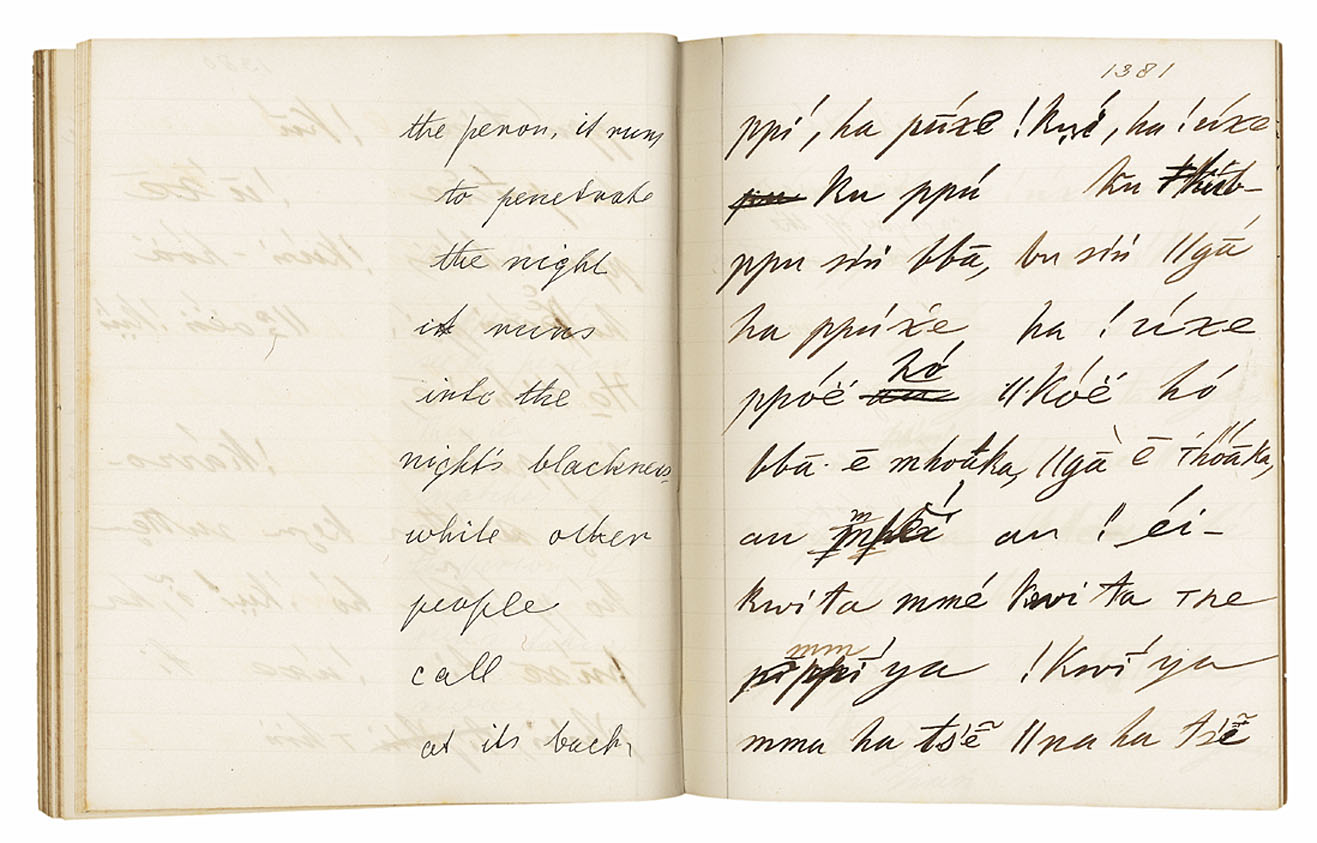 the person, it runs
to penetrate
the night
it runs
into the
night's blackness,
while other
people
call
at its back,
1381
ppí, ha púxe !kwí, ha !úxe
ku ppú ku
ppu síń bbā, bu síń ǁgā
ha ppúxe ha !úxe
ppóë hó ǁkóë hó
bbā ē mhoāka, ǁgā ē ꞇhoāka,
au au !éi-
kwita mmé kwita ꞇne
mm ya !kwí ya
mma ha tsʼẽ ǁna ha tsʼẽ